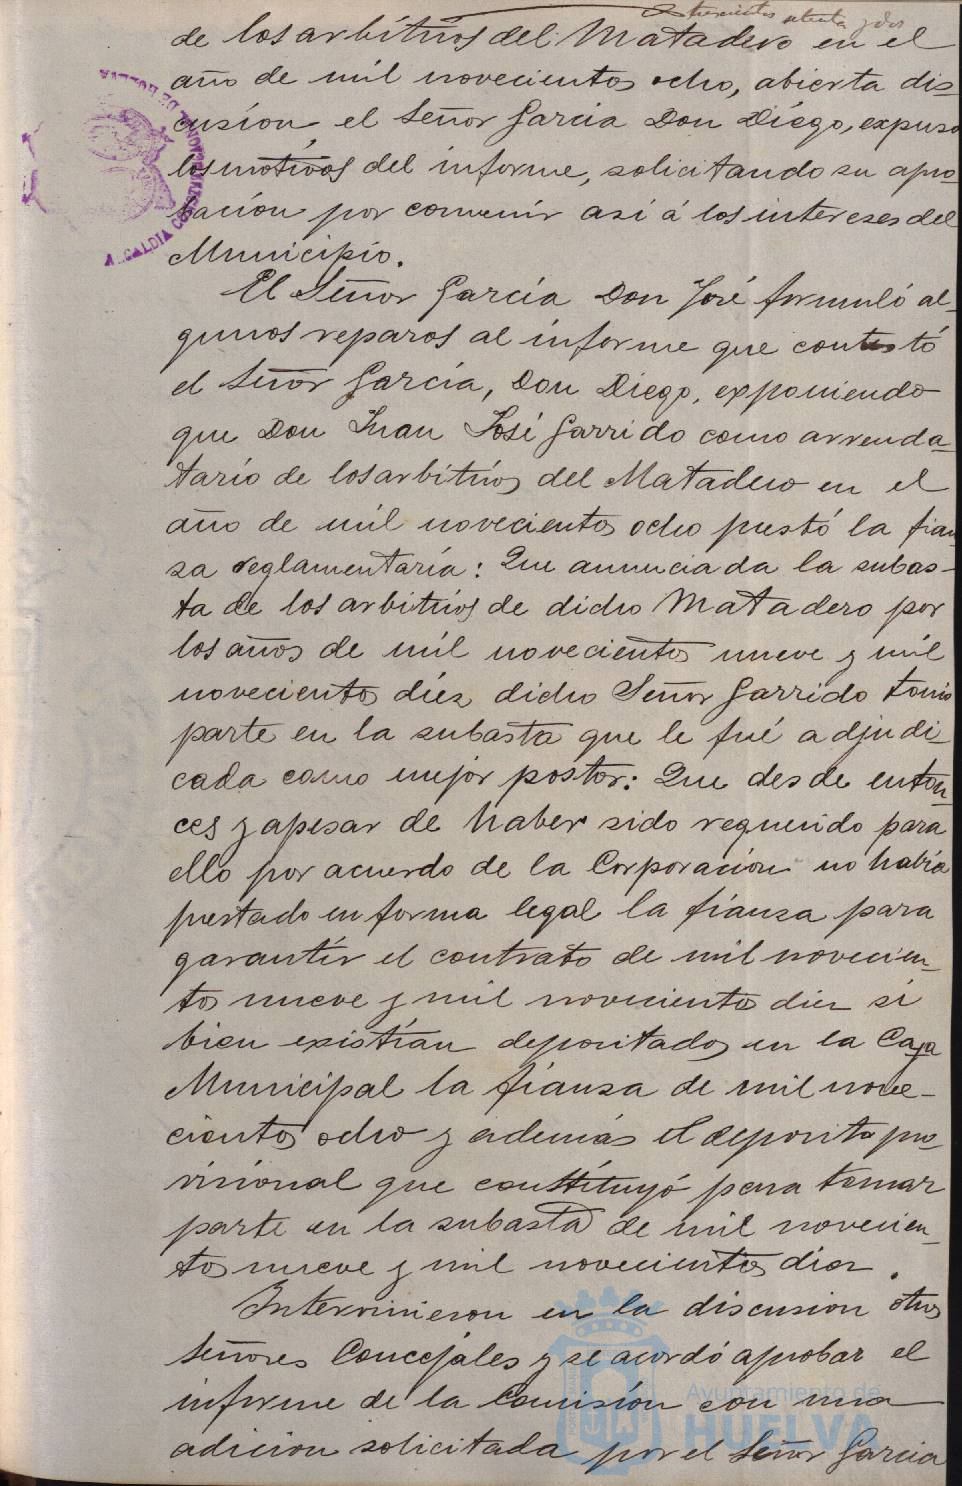 trescientos setenta y dos
de los arbitrios del Matadero en el
año de mil novecientos ocho, abierta dis-
cusión el Señor García Don Diégo, expuso
los motivos del informe, solicitando su apro-
bación por convenir así á los intereses del
Municipio.
El Señor García Don José formuló al-
gunos reparos al informe que contestó
el Señor García, Don Diego, exponiendo
que Don Juan José Garrido como arrenda-
tario de los arbitrios del Matadero en el
año de mil novecientos ocho prestó la fian-
za reglamentaría: Que anunciada la subas-
ta de los arbitrios de dicho Matadero por
los años de mil novecientos nueve y mil
novecientos diez dicho Señor Garrido tomó
parte en la subasta que le fué adjudi-
cada como mejor postor: Que desde enton-
ces y apesar de haber sido requerido para
ello por acuerdo de la Corporación no había
prestado en forma legal la fianza para
garantir el contrato de mil novecien-
tos nueve y mil novecientos diez si
bien existían depositados en la Caja
Municipal la fianza de mil nove-
cientos ocho y además el deposito pro-
visional que constituyó para tomar
parte en la subasta de mil novecien-
tos nueve y mil novecientos diez.
Intervinieron en la discusion otros
Señores Concejales y se acordó aprobar el
informe de la Comisión con una
adicion solicitada por el Señor García
ALCALDIA CONSTITUCIONAL DE HUELVA
Ayuntamiento de
HUELVA